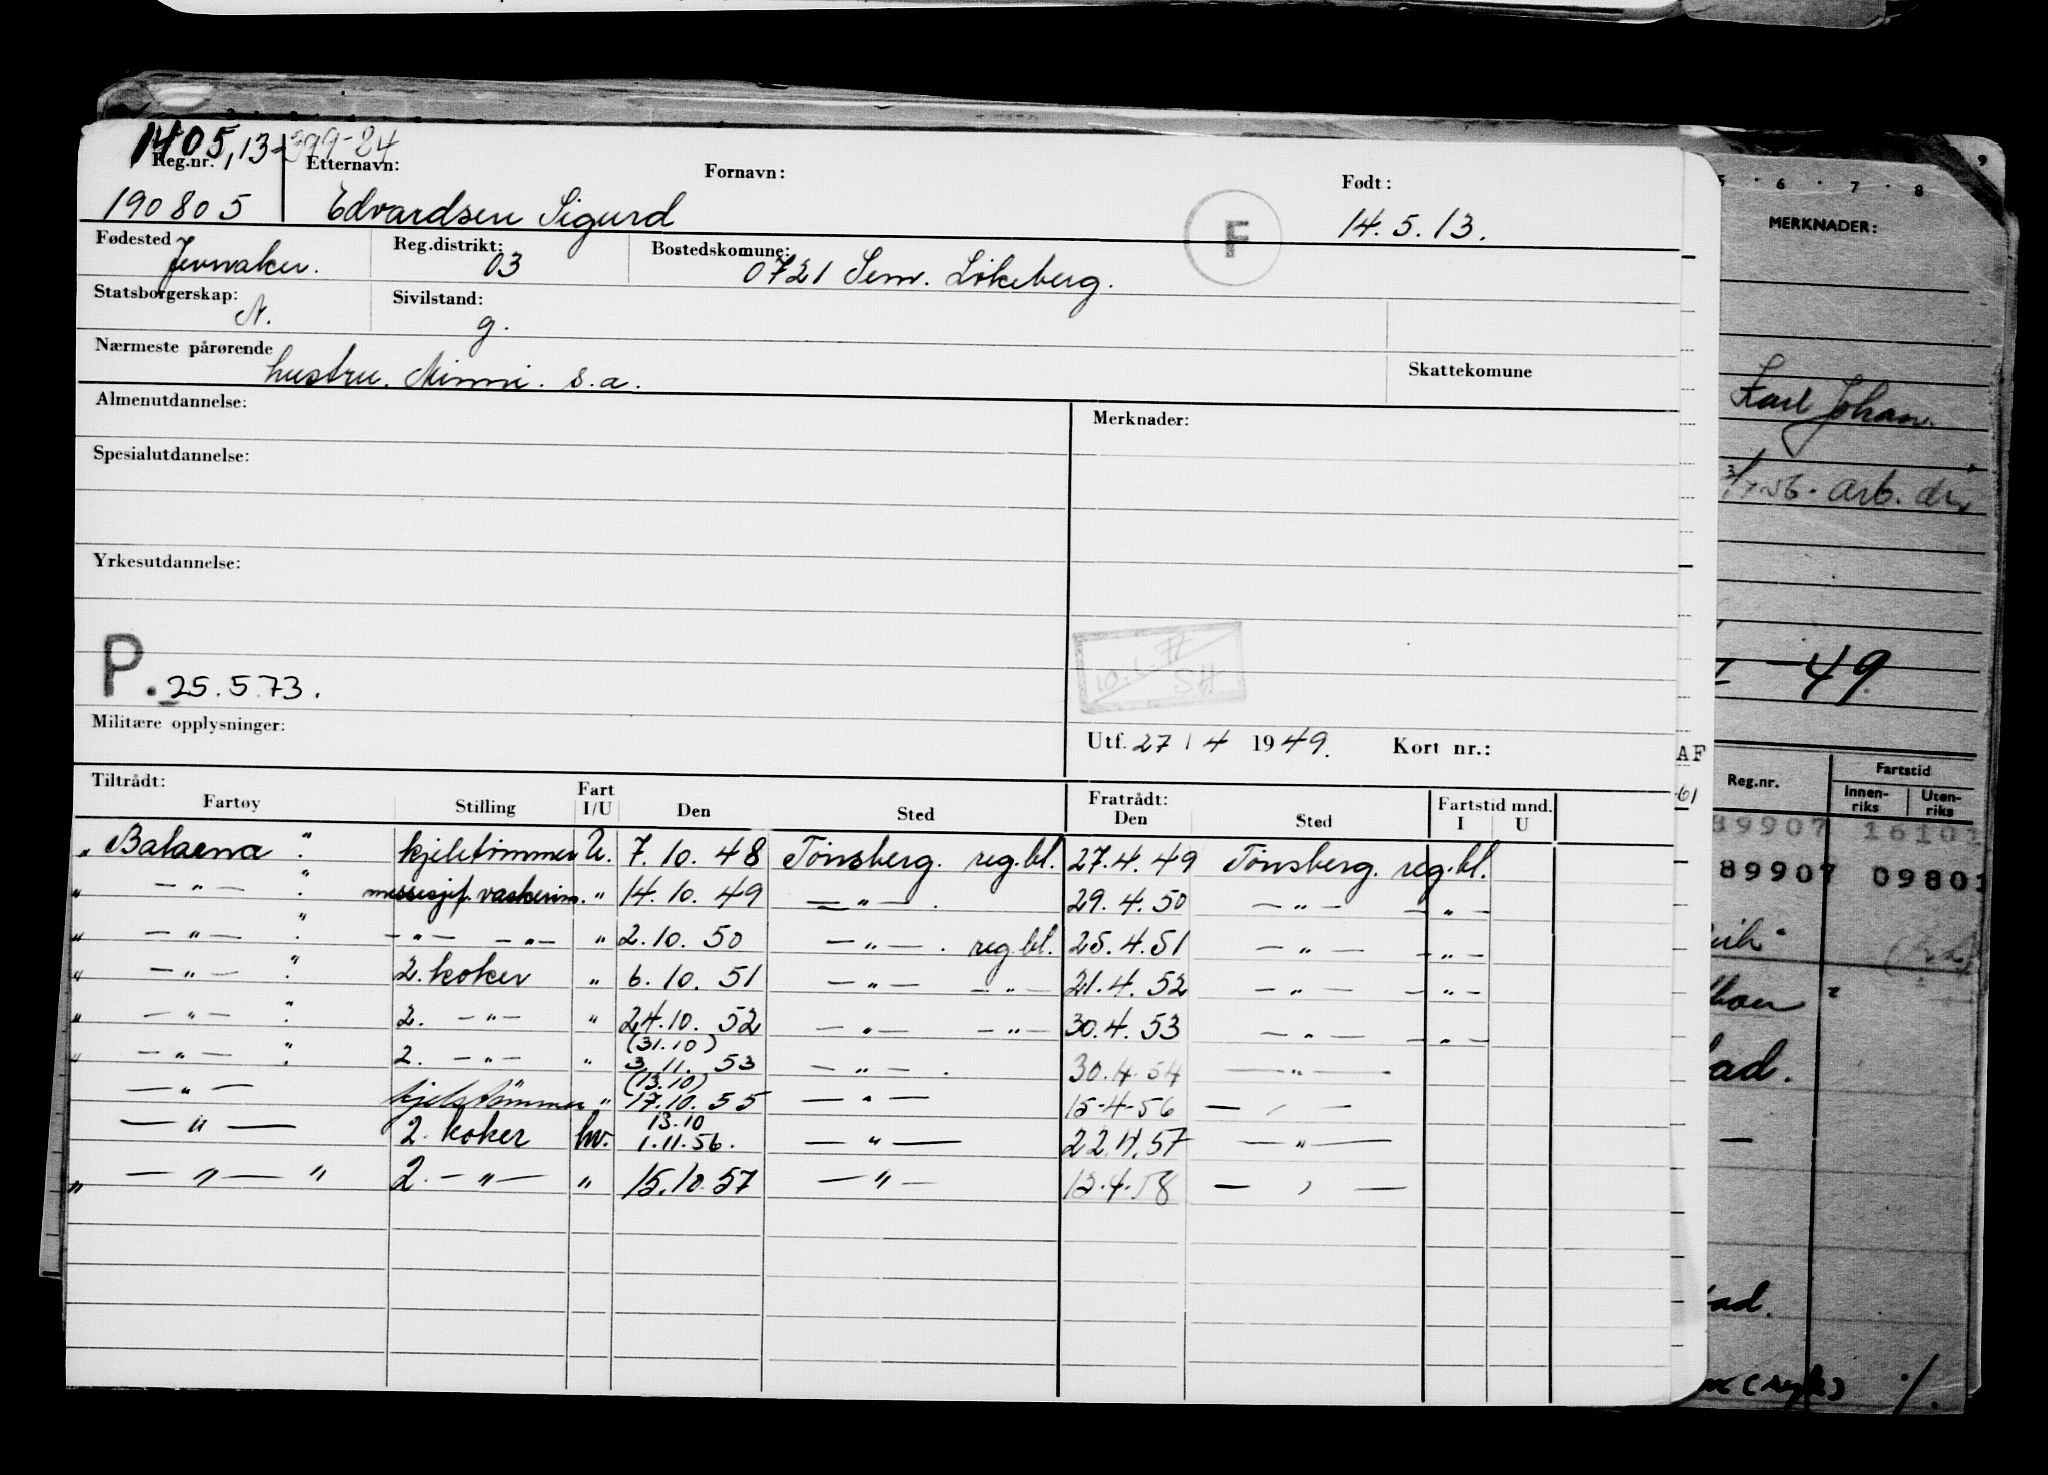 1405,13-399-24
Reg.nr. Etternavn: Fornavn: Født:
190805 Edvardsen Sigurd F 14.5.13.
Fødested Jevnaker. Reg.distrikt: 03 Bostedskomune: 0721 Sem. Løkeberg.
Statsborgerskap: N. Sivilstand: g.
Nærmeste pårørende hustru. Mimmi. s.a. Skattekomune
Almenutdannelse: Merknader:
Spesialutdannelse:
Yrkesutdannelse:
P. 25.5.73.
SH
Militære opplysninger: Utf. 27/4 1949. Kort nr.:
Tiltrådt: Fratrådt: Fartstid mnd.
Fartøy Stilling Fart I/U Den Sted Den Sted I U
„ Balaena " kjeletømmer U. 7.10.48 Tønsberg. reg.bl. 27.4.49 Tønsberg. reg.bl.
„ —"— " messesjef. vaskerim. " 14.10.49 —"—. 29.4.50 —"— —"—
„ —"— " —"— —"— " 2.10.50 —"—. reg.bl. 25.4.51 —"— —"—
„ —"— " 2. koker " 6.10.51 —"— —"— 21.4.52 —"— —"—
„ —"— " 2. —"— " 24.10.52 —"— —"— 30.4.53 —"— —"—
„ —"— " 2. —"— " (31.10) 3.11.53 —"—. 30.4.54 —"—
—"— kjeletømmer " (13.10) 17.10.55 —"— 15-4-56 — , —
—"— 2. koker hv. 13.10 1.11.56. —"— 22.4.57 —"—
„ —"— " 2. —"— " 15.10.57 —"— 13.4.58 — , —
5 · 6 · 7 · 8 9
MERKNADER:
Karl Johan.
arb.
-49
AF
61
Reg.nr. Fartstid
Innenriks Utenriks
89907 16101
89907 09801
ad.
—
ad.